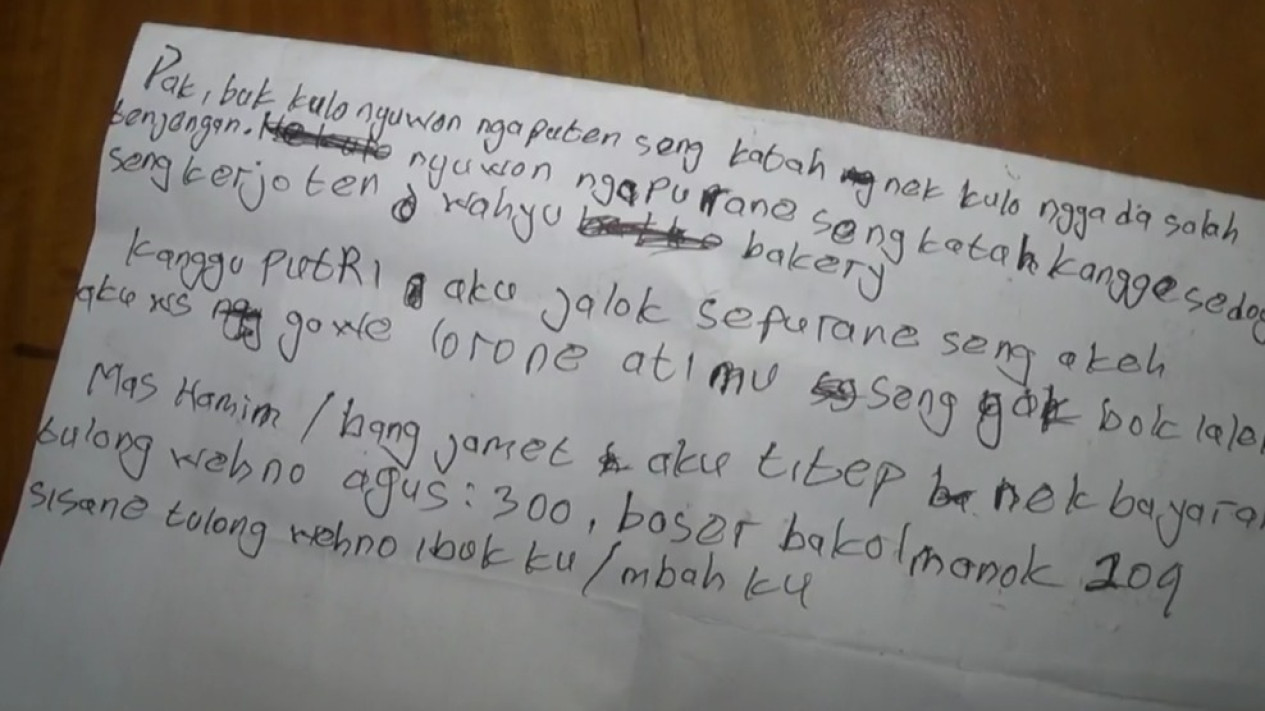 Pak, buk kulo nyuwon ngaputen seng katah nek kulo nggada salah
benjangan. nyuwon ngapurane seng katah kangge sedoy
seng kerjo ten wahyu bakery
Kanggu PutRI aku jalok sepurane seng akeh
aku wis gowe lorone atimu seng gak bok lale
Mas Hamim / bang jamet aku titep nek bayaran
tulong wehno agus: 300, boser bakol manok 209
sisane tulong wehno ibuk ku / mbah ku